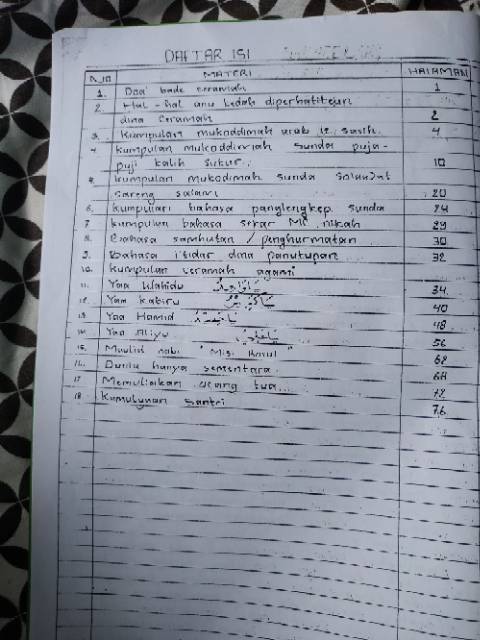 DAFTAR ISI
No MATERI HALAMAN
1. Doa bade ceramah 1
2. Hal-hal anu kedah diperhatikeun
dina ceramah 2
3. Kumpulan mukaddimah arab 12 sasih. 4
4 kumpulan mukaddimah sunda puja-
puji kalih sukur. 10
5 kumpulan mukodimah sunda solawat
sareng salam 20
6. kumpulan bahasa panglengkep sunda 24
7 kumpulan bahasa sekar MC nikah 29
8. Bahasa sambutan / penghurmatan 30
9. Bahasa i'tidar dina panutupan 32
10. kumpulan ceramah agami
11. Yaa Wahidu 34
12. Yaa Kabiru 40
13 Yaa Hamid 48
14 Yaa Aliyu 56
15. Maulid nabi 62
16. Dunia hanya sementara 68
17 Memuliakan orang tua 72
18 Kumulunan santri 76